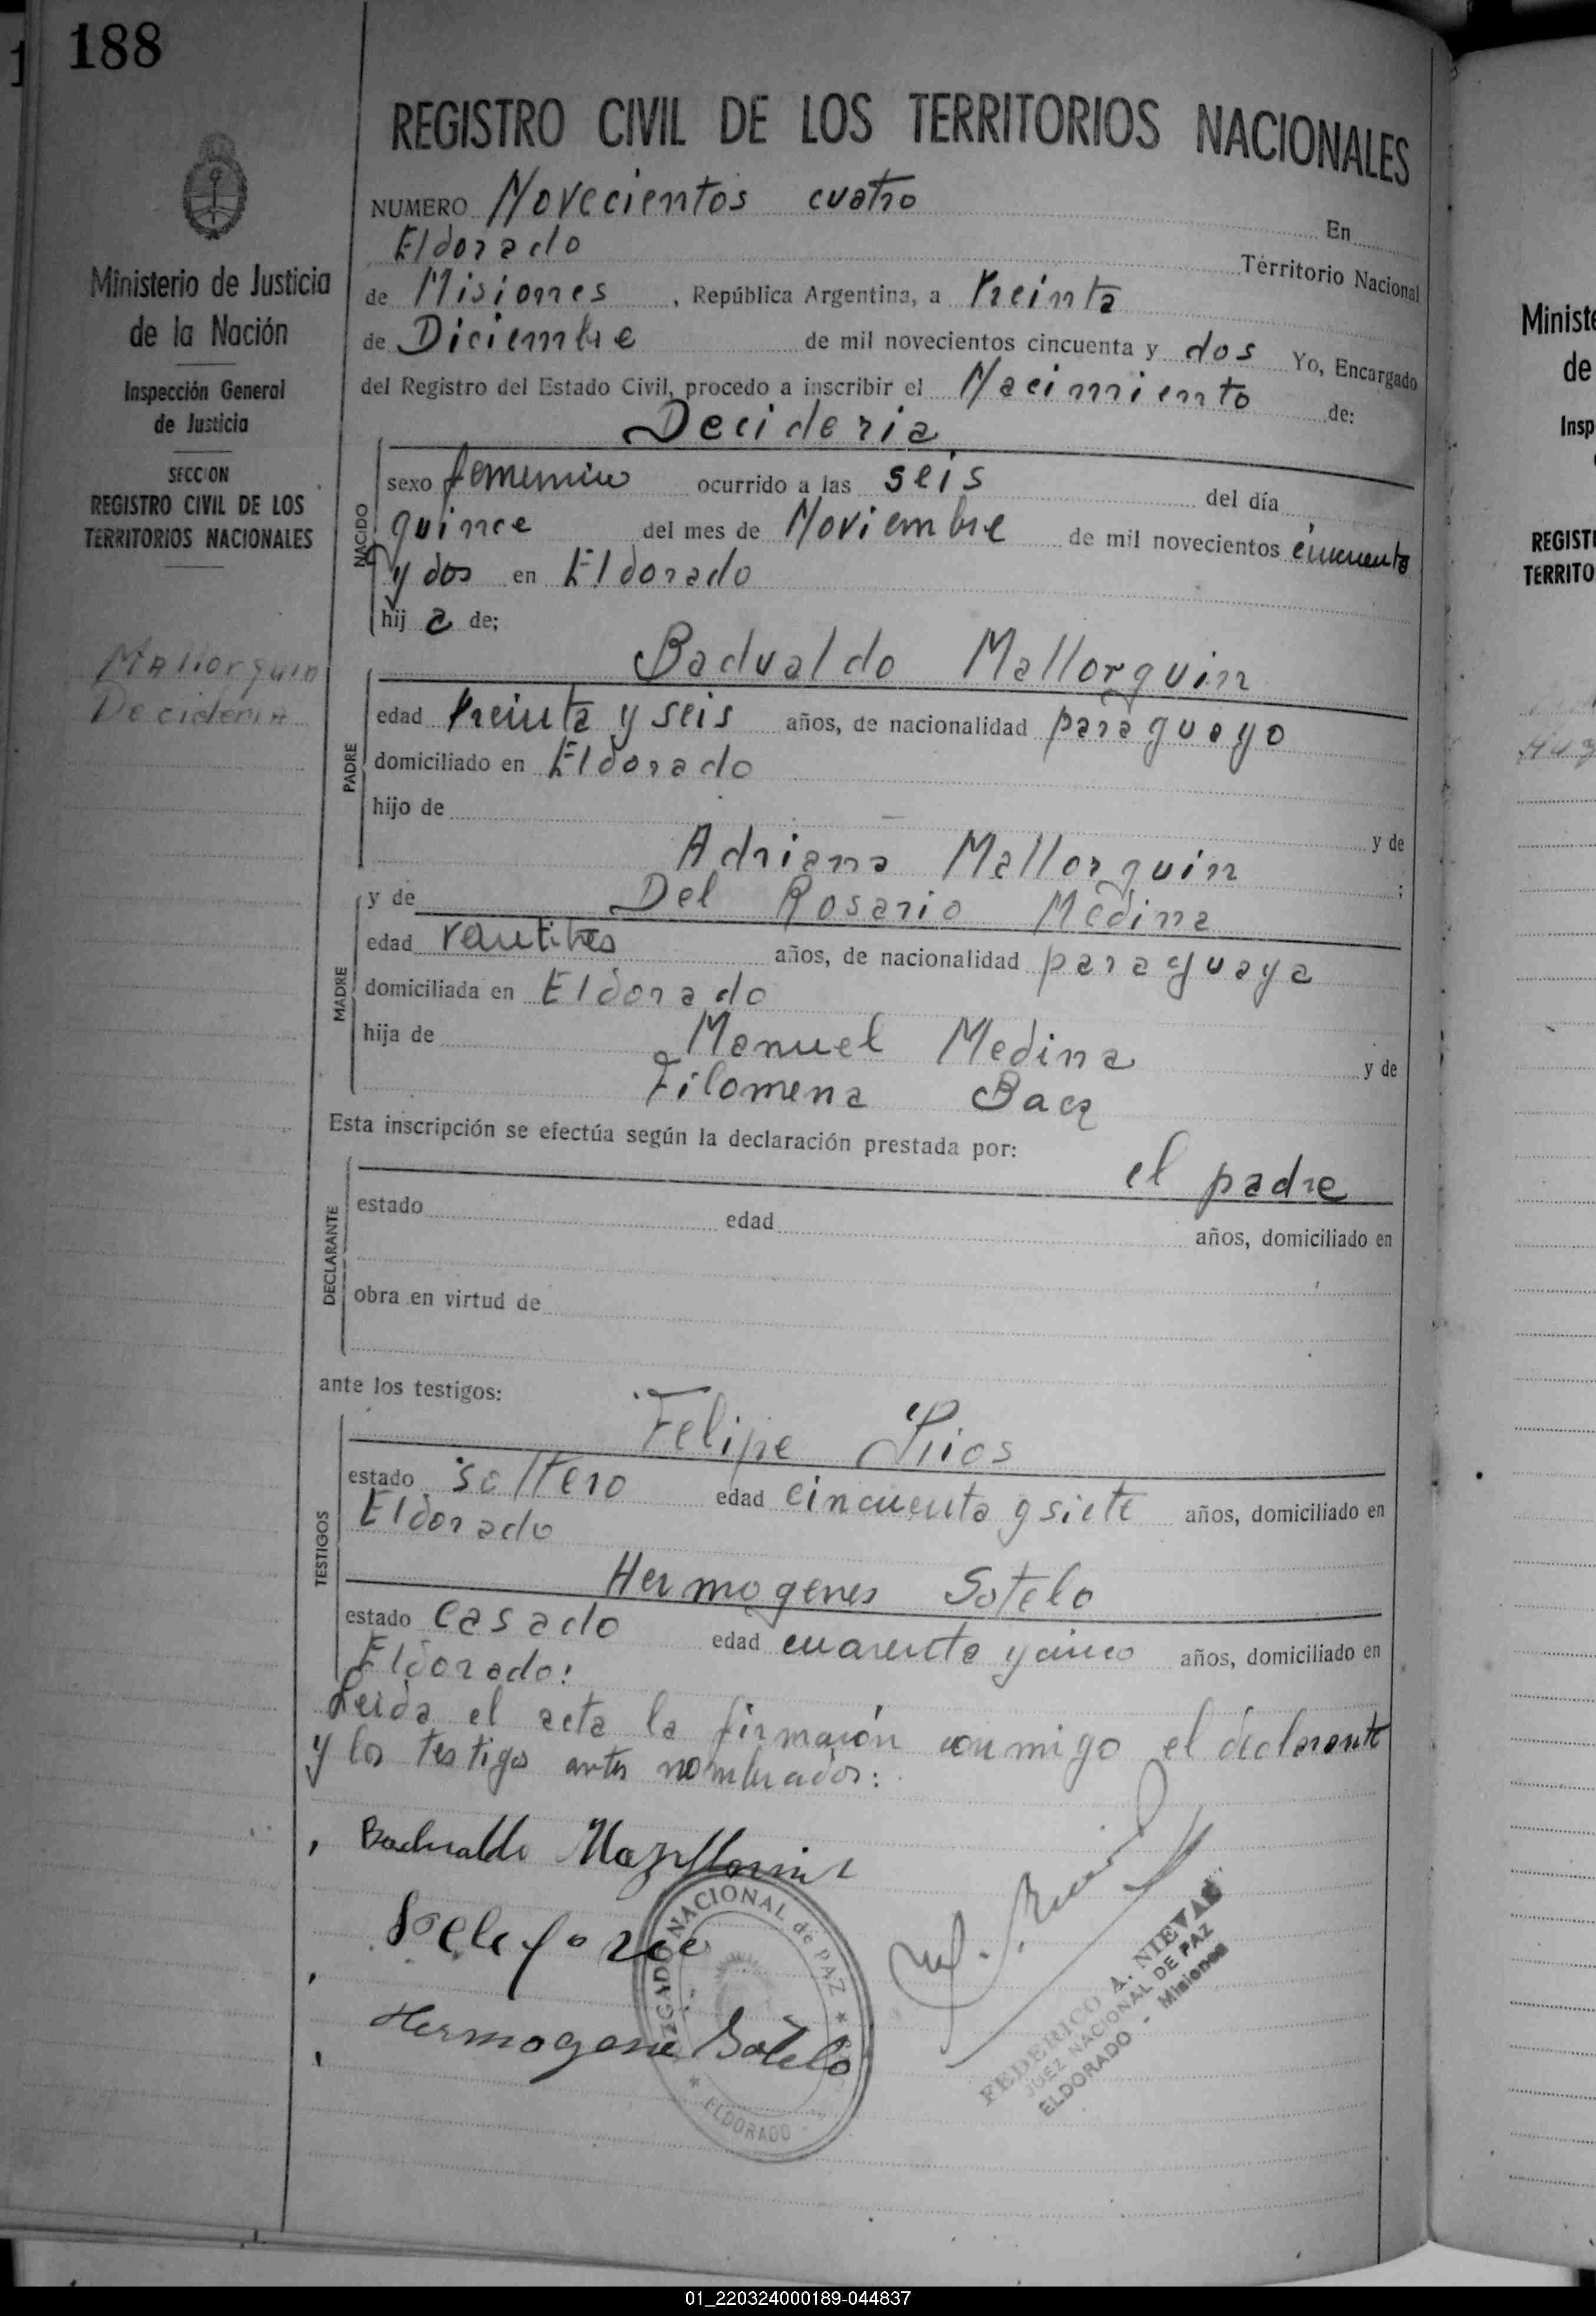 188
REGISTRO CIVIL DE LOS TERRITORIOS NACIONALES
NUMERO Novecientos cuatro En
Eldorado Territorio Nacional
de Misiones, República Argentina, a treinta
de Diciembre de mil novecientos cincuenta y dos Yo, Encargado
del Registro del Estado Civil, procedo a inscribir el Nacimiento de:
Decideria
NACIDO
sexo femenino ocurrido a las seis del día
quince del mes de Noviembre de mil novecientos cincuenta
y dos en Eldorado
hij a de;
Badualdo Mallorquin
PADRE
edad treinta y seis años, de nacionalidad paraguayo
domiciliado en Eldorado
hijo de y de
Adriana Mallorquin ;
y de Del Rosario Medina
MADRE
edad veintitres años, de nacionalidad paraguaya
domiciliada en Eldorado
hija de Manuel Medina y de
Filomena Baez
Esta inscripción se efectúa según la declaración prestada por:
el padre
DECLARANTE
estado edad años, domiciliado en
obra en virtud de
ante los testigos:
Felipe
TESTIGOS
estado soltero edad cincuenta y siete años, domiciliado en
Eldorado
Hermogenes Sotelo
estado casado edad cuarenta y cinco años, domiciliado en
Eldorado:
Leida el acta la firmarón conmigo el declarante
y los testigos antes nombrados:
Badualdo
Hermogene Sotelo
JUZGADO NACIONAL de PAZ
ELDORADO
FEDERICO A. NIEVAS
JUEZ NACIONAL DE PAZ
ELDORADO - Misiones
Ministerio de Justicia
de la Nación
Inspección General
de Justicia
SECCION
REGISTRO CIVIL DE LOS
TERRITORIOS NACIONALES
Mallorquin
Decideria
Ministe
de
Insp
REGISTI
TERRITO
01_220324000189-044837